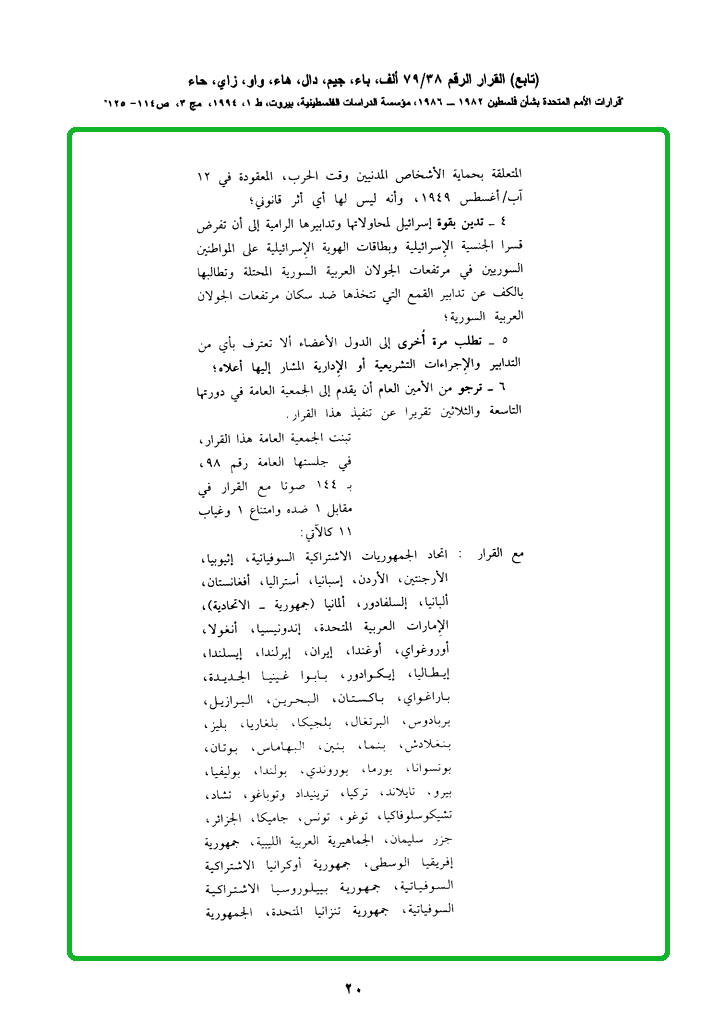 (تابع) القرار الرقم ٧٩/٣٨ ألف، باء، جيم، دال، هاء، واو، زاي، حاء
"قرارات الأمم المتحدة بشأن فلسطين ١٩٨٢ ــ ١٩٨٦، مؤسسة الدراسات الفلسطينية، بيروت، ط ١، ١٩٩٤، مج ٣، ص١١٤- ١٢٥"
المتعلقة بحماية الأشخاص المدنيين وقت الحرب، المعقودة في ١٢
آب/أغسطس ١٩٤٩، وأنه ليس لها أي أثر قانوني؛
٤ ـ تدين بقوة إسرائيل لمحاولاتها وتدابيرها الرامية إلى أن تفرض
قسرا الجنسية الإسرائيلية وبطاقات الهوية الإسرائيلية على المواطنين
السوريين في مرتفعات الجولان العربية السورية المحتلة وتطالبها
بالكف عن تدابير القمع التي تتخذها ضد سكان مرتفعات الجولان
العربية السورية؛
٥ ـ تطلب مرة أُخرى إلى الدول الأعضاء ألا تعترف بأي من
التدابير والإجراءات التشريعية أو الإدارية المشار إليها أعلاه؛
٦ ـ ترجو من الأمين العام أن يقدم إلى الجمعية العامة في دورتها
التاسعة والثلاثين تقريرا عن تنفيذ هذا القرار.
تبنت الجمعية العامة هذا القرار،
في جلستها العامة رقم ٩٨،
بـ ١٤٤ صوتا مع القرار في
مقابل ١ ضده وامتناع ١ وغياب
١١ كالآتي:
مع القرار : اتحاد الجمهوريات الاشتراكية السوفياتية، إثيوبيا،
الأرجنتين، الأردن، إسبانيا، أستراليا، أفغانستان،
ألبانيا، إلسلفادور، ألمانيا (جمهورية ـ الاتحادية)،
الإمارات العربية المتحدة، إندونيسيا، أنغولا،
أوروغواي، أوغندا، إيران، إيرلندا، إيسلندا،
إيطاليا، إيكوادور، بابوا غينيا الجديدة،
باراغواي، باكستان، البحرين، البرازيل،
بربادوس، البرتغال، بلجيكا، بلغاريا، بليز،
بنغلادش، بنما، بنين، البهاماس، بوتان،
بوتسوانا، بورما، بوروندي، بولندا، بوليفيا،
بيرو، تايلاند، تركيا، ترينيداد وتوباغو، تشاد،
تشيكوسلوفاكيا، توغو، تونس، جاميكا، الجزائر،
جزر سليمان، الجماهيرية العربية الليبية، جمهورية
إفريقيا الوسطى، جمهورية أوكرانيا الاشتراكية
السوفياتية، جمهورية بييلوروسيا الاشتراكية
السوفياتية، جمهورية تنزانيا المتحدة، الجمهورية
٢٠